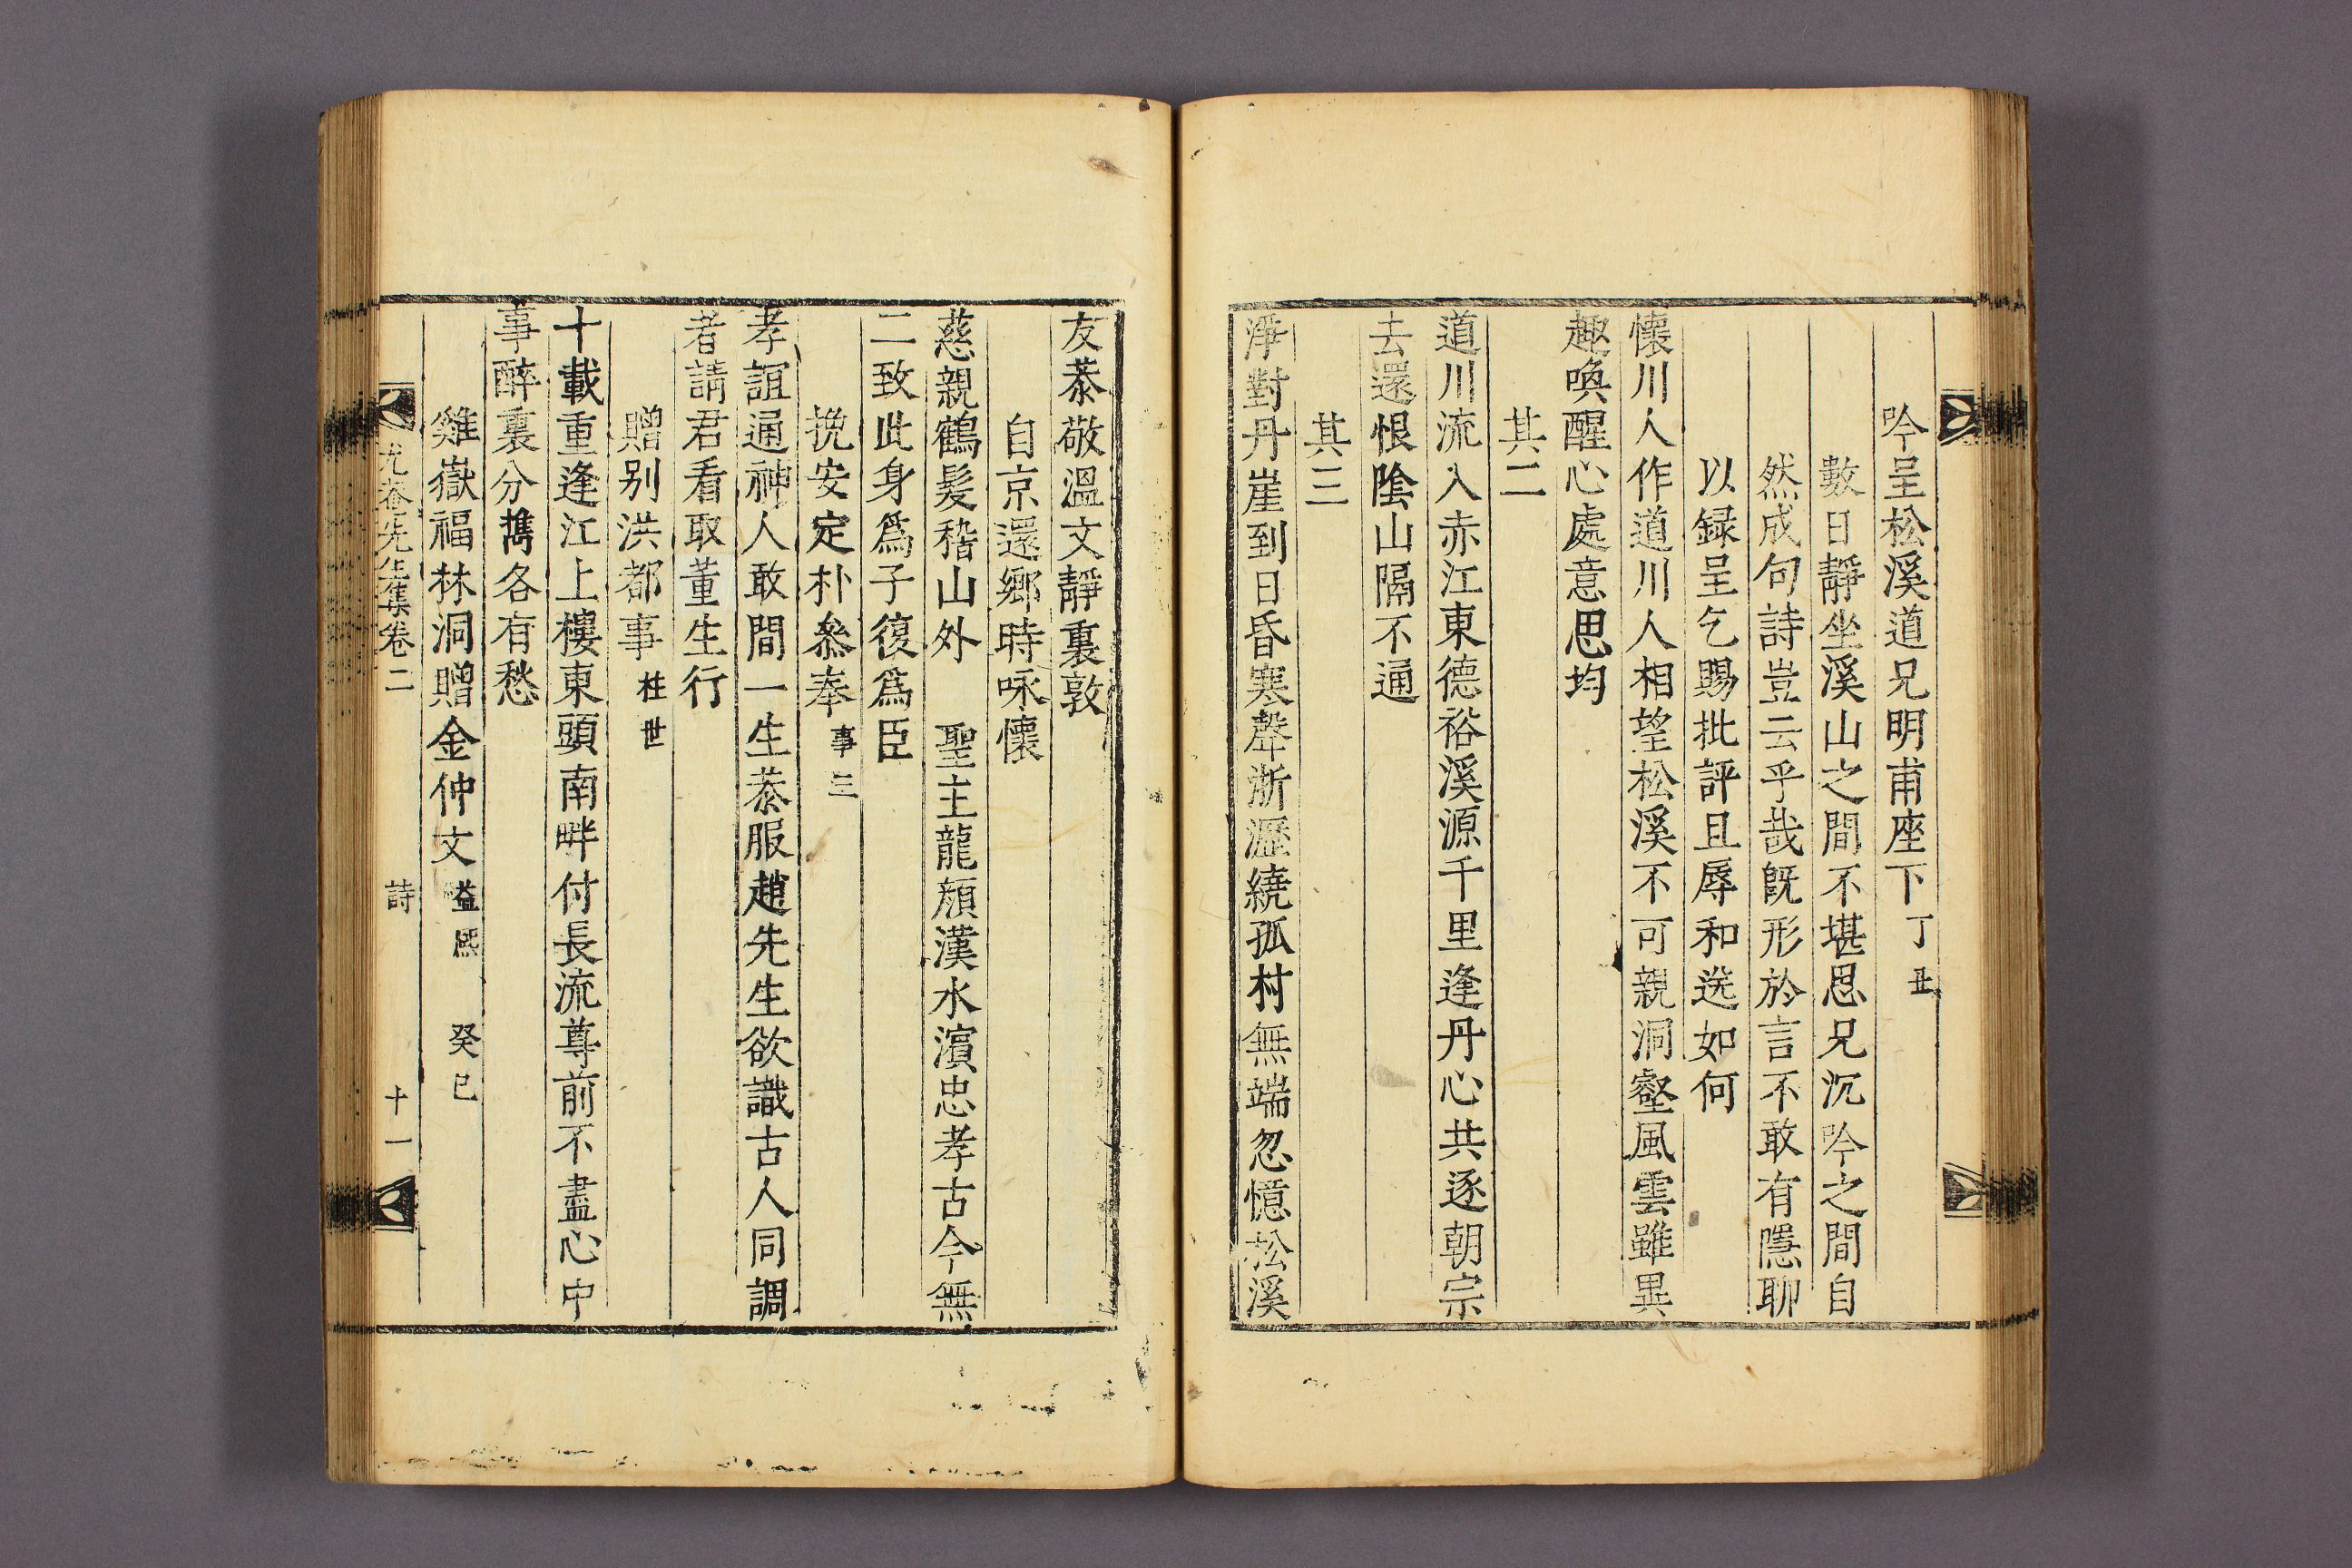 吟呈松溪道兄明甫座下 丁丑
數日靜坐溪山之間不堪思兄沉吟之間自
然成句詩豈云乎哉旣形於言不敢有隱聊
以録呈乞賜批評且辱和送如何
懷川人作道川人相望松溪不可親洞壑風雲雖異
趣喚醒心處意思均
其二
道川流入赤江東德裕溪源千里逢丹心共逐朝宗
去還恨陰山隔不通
其三
淨對丹崖到日昏寒聲淅瀝繞孤村無端忽憶松溪
友恭敬溫文靜裏敦
自京還鄕時咏懷
慈親鶴髮稽山外 聖主龍顏漢水濱忠孝古今無
二致此身爲子復爲臣
挽安定朴叅奉 事三
孝誼通神人敢間一生恭服趙先生欲識古人同調
者請君看取董生行
贈别洪都事 柱世
十載重逢江上樓東頭南畔付長流尊前不盡心中
事醉裏分携各有愁
雞嶽福林洞贈金仲文 益熙 癸巳
先生集卷二 詩 十一